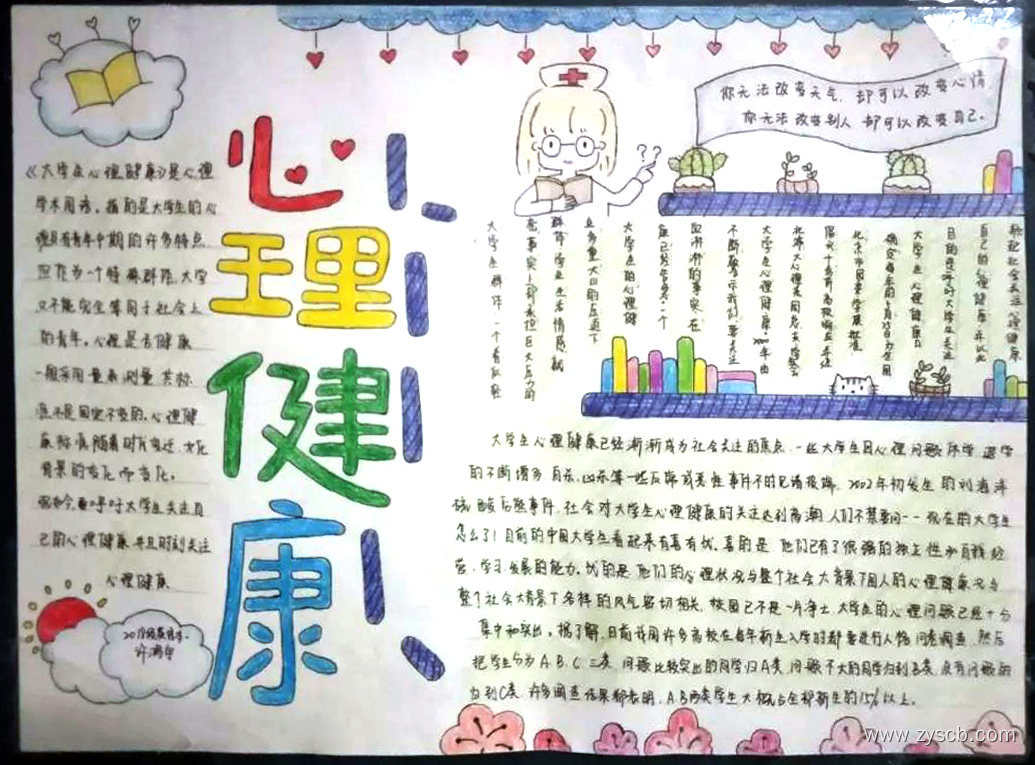 你无法改变天气,却可以改变心情
你无法改变别人 却可以改变自己。
心理健康
《大学生心理健康》是心理
学术用语,指的是大学生的心
理具有青年中期的许多特点
但作为一个特殊群体,大学
又不能完全等同于社会上
的青年,心理是否健康
一般采用量表测量 其标
准不是固定不变的,心理健
康标准随着时代变迁,文化
背景的变化而变化。
如今呼吁大学生关注自
己的心理健康 并且时刻关注
心理健康
大学生群体,一个看似轻
在事实上却承担巨大压力的
群体 学业 生活 情感 就
业多重大山的压迫下
大学生的心理健康
不断警示我们 要关注
大学生心理健康!2000年由
大学生心理健康日
自己的心理健康 并以此
大学生心理健康已经渐渐成为社会关注的焦点,一些大学生因心理问题休学 退学
的不断增多 自杀、凶杀等一些反常或恶性事件不时见诸报端,2002年初发生的刘海洋
硫酸伤熊事件,社会对大学生心理健康的关注达到高潮 人们不禁要问--现在的大学生
怎么了!目前的中国大学生看起来有喜有忧,喜的是 他们已有了很强的独立性和自我经
营、学习、发展的能力,忧的是 他们的心理状况与整个社会大背景下国人的心理健康况与
整个社会大背景下各样的风气密切相关,校园已不是一片净土 大学生的心理问题已经十分
集中和突出。据了解,目前我国许多高校在每年新生入学时都要进行人格问卷调查,然后
把学生分为A、B、C、三类 问题比较突出的同学归A类 问题不大的同学归到B类 没有问题的
归到C类,许多调查结果都表明,A、B两类学生大概占全部新生的15%以上。
www.zyscb.com